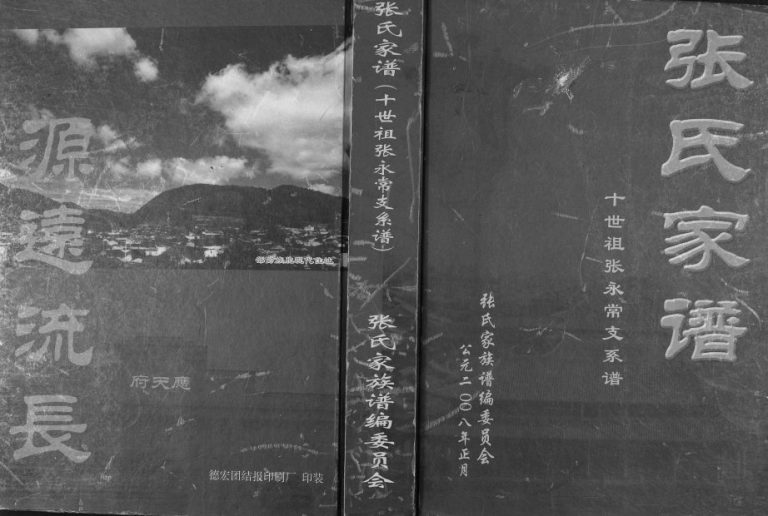 张氏家谱
十世祖张永常支系谱
张氏家族谱编委员会
公元二〇〇八年正月
张氏家谱(十世祖张永常支系谱)
张氏家族谱编委员会
源遠流長
府天應
德宏团结报印刷厂 印装